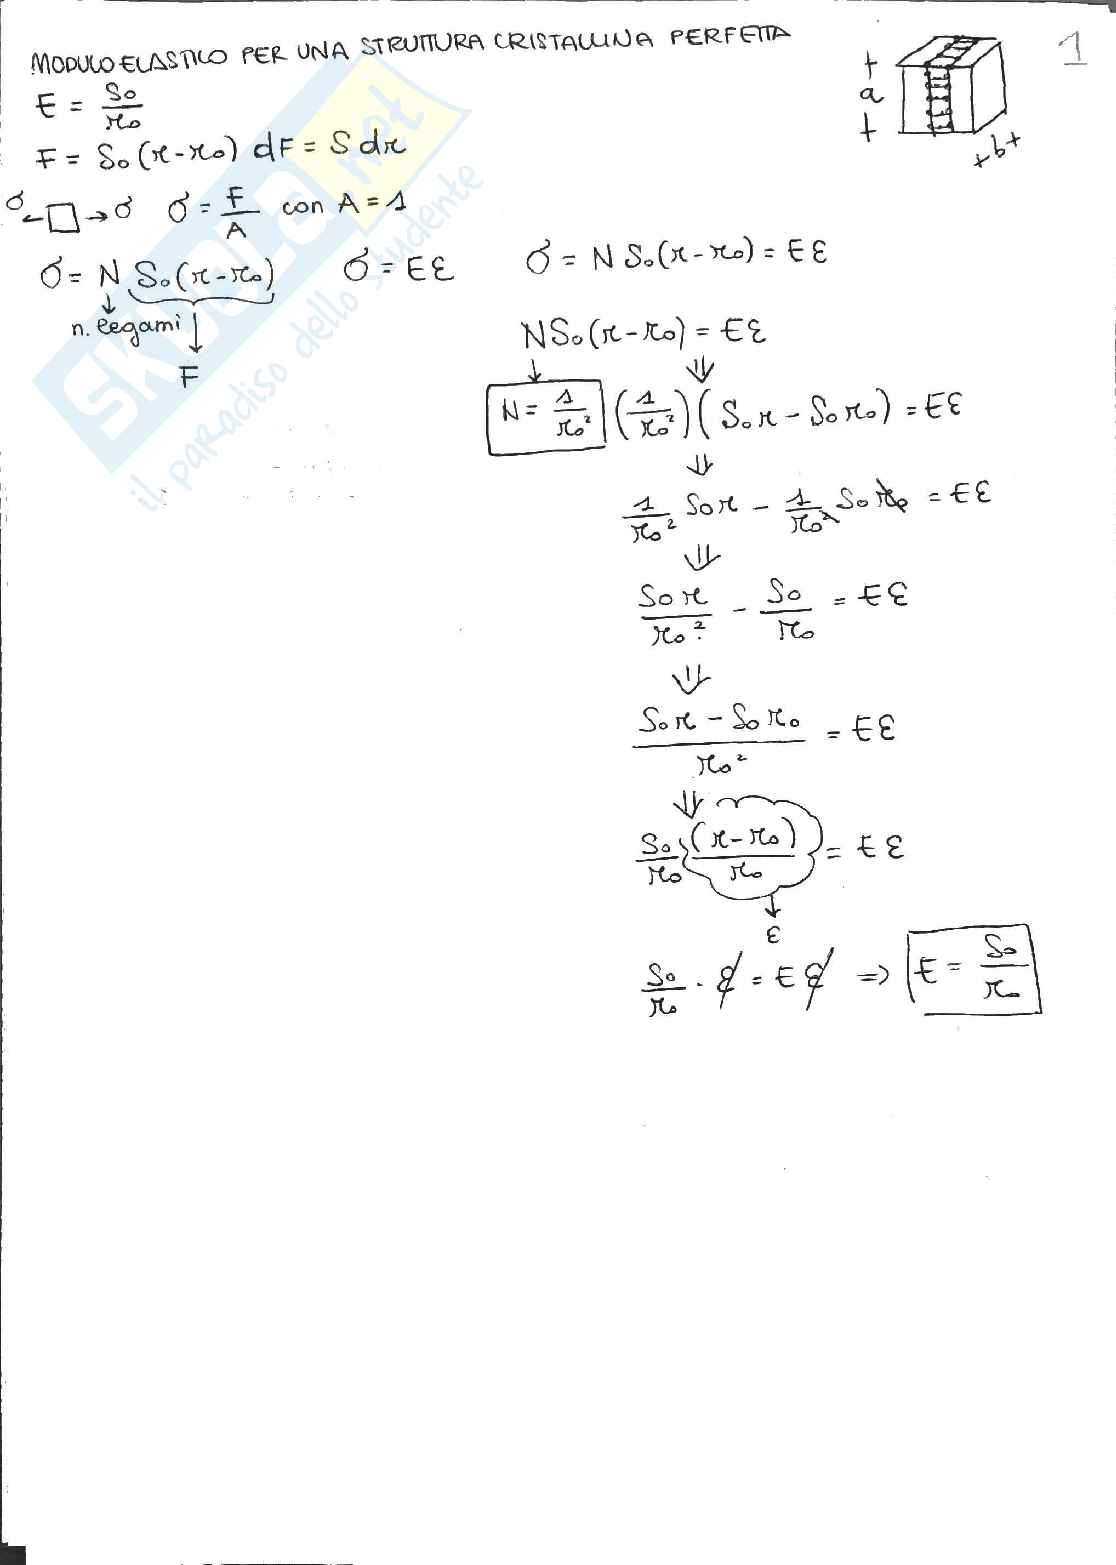 MODULO ELASTICO PER UNA STRUTTURA CRISTALLINA PERFETTA
1
t
a
t
+b+
E = S₀/r₀
F = S₀(r-r₀) dF = S dr
σ ← □ → σ σ = F/A con A = 1
σ = N S₀(r-r₀) σ = Eε σ = N S₀(r-r₀) = Eε
n. legami
F
NS₀(r-r₀) = Eε
N = 1/r₀² (1/r₀²)(S₀r - S₀r₀) = Eε
1/r₀² S₀r - 1/r₀² S₀r₀ = Eε
S₀r/r₀² - S₀/r₀ = Eε
(S₀r - S₀r₀)/r₀² = Eε
S₀/r₀ (r-r₀)/r₀ = Eε
ε
S₀/r₀ · ε = Eε ⇒ E = S₀/r₀
SKUOLA.net
il paradiso dello studente